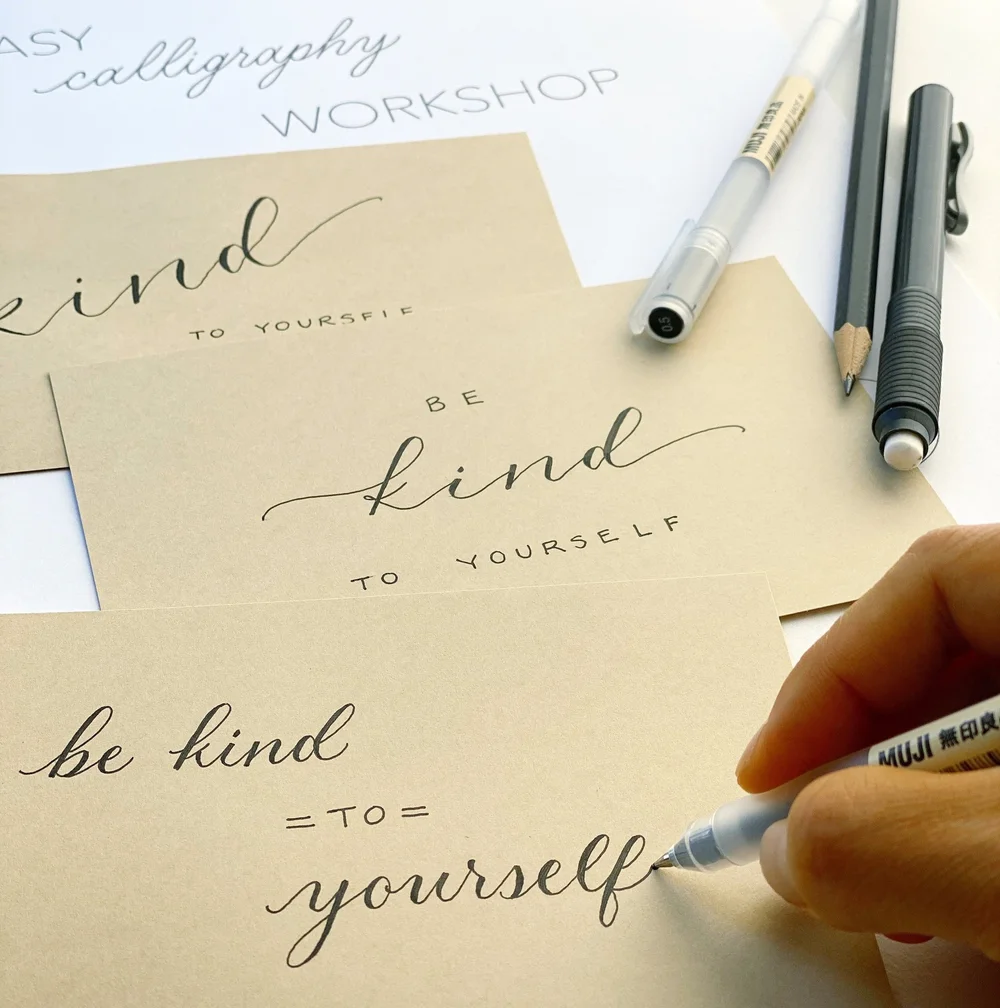 ASY
calligraphy
WORKSHOP
MUJI 無印良品
0.5
kind
TO YOURSELF
BE
kind
TO YOURSELF
be kind
=TO=
yourself
MUJI 無印良